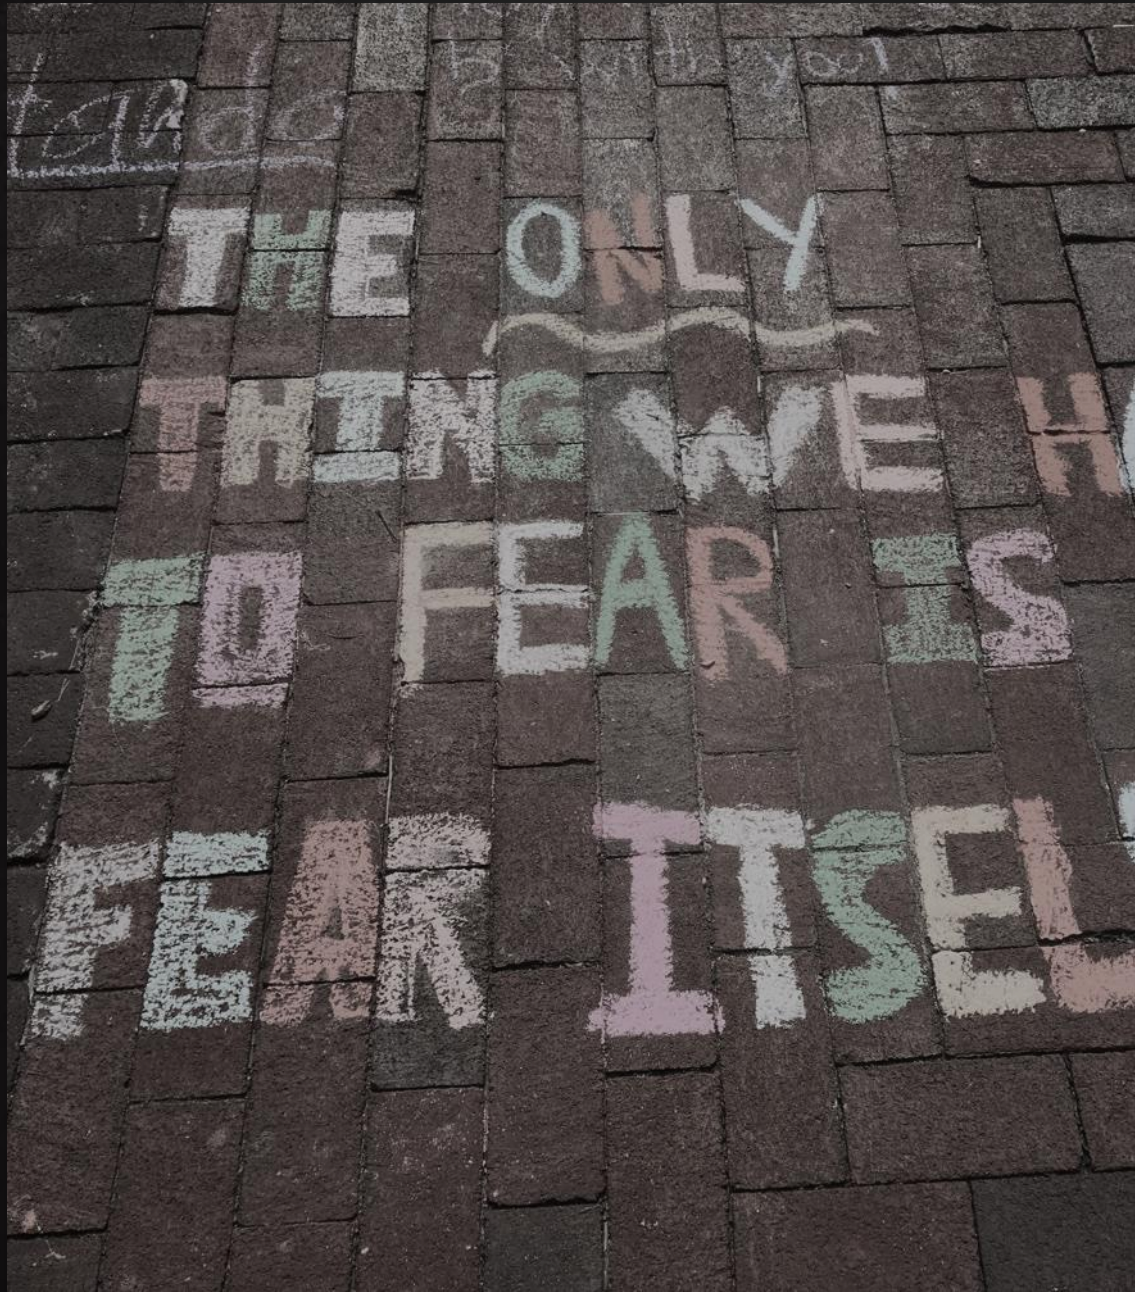 with you!
THE ONLY
THING WE H
TO FEAR IS
FEAR ITSEL